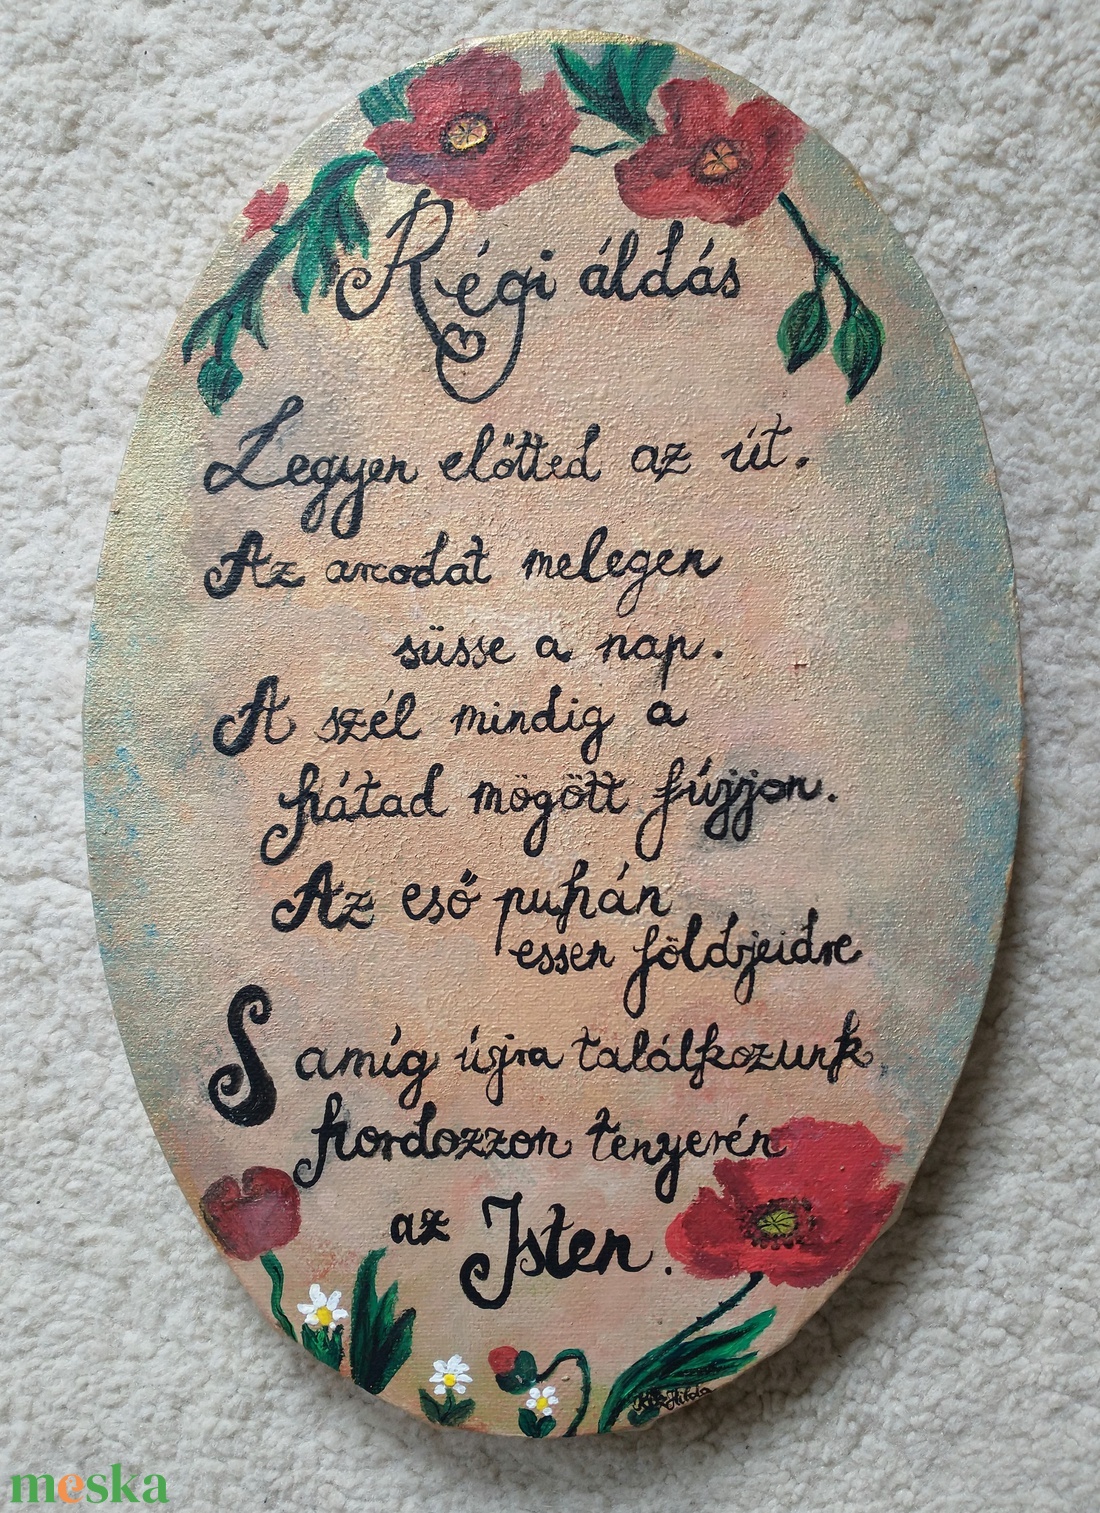 Régi áldás
Legyen előtted az út.
Az arcodat melegen
süsse a nap.
A szél mindig a
hátad mögött fújjon.
Az eső puhán
essen földjeidre
S amíg újra találkozunk
hordozzon tenyerén
az Isten.
meska